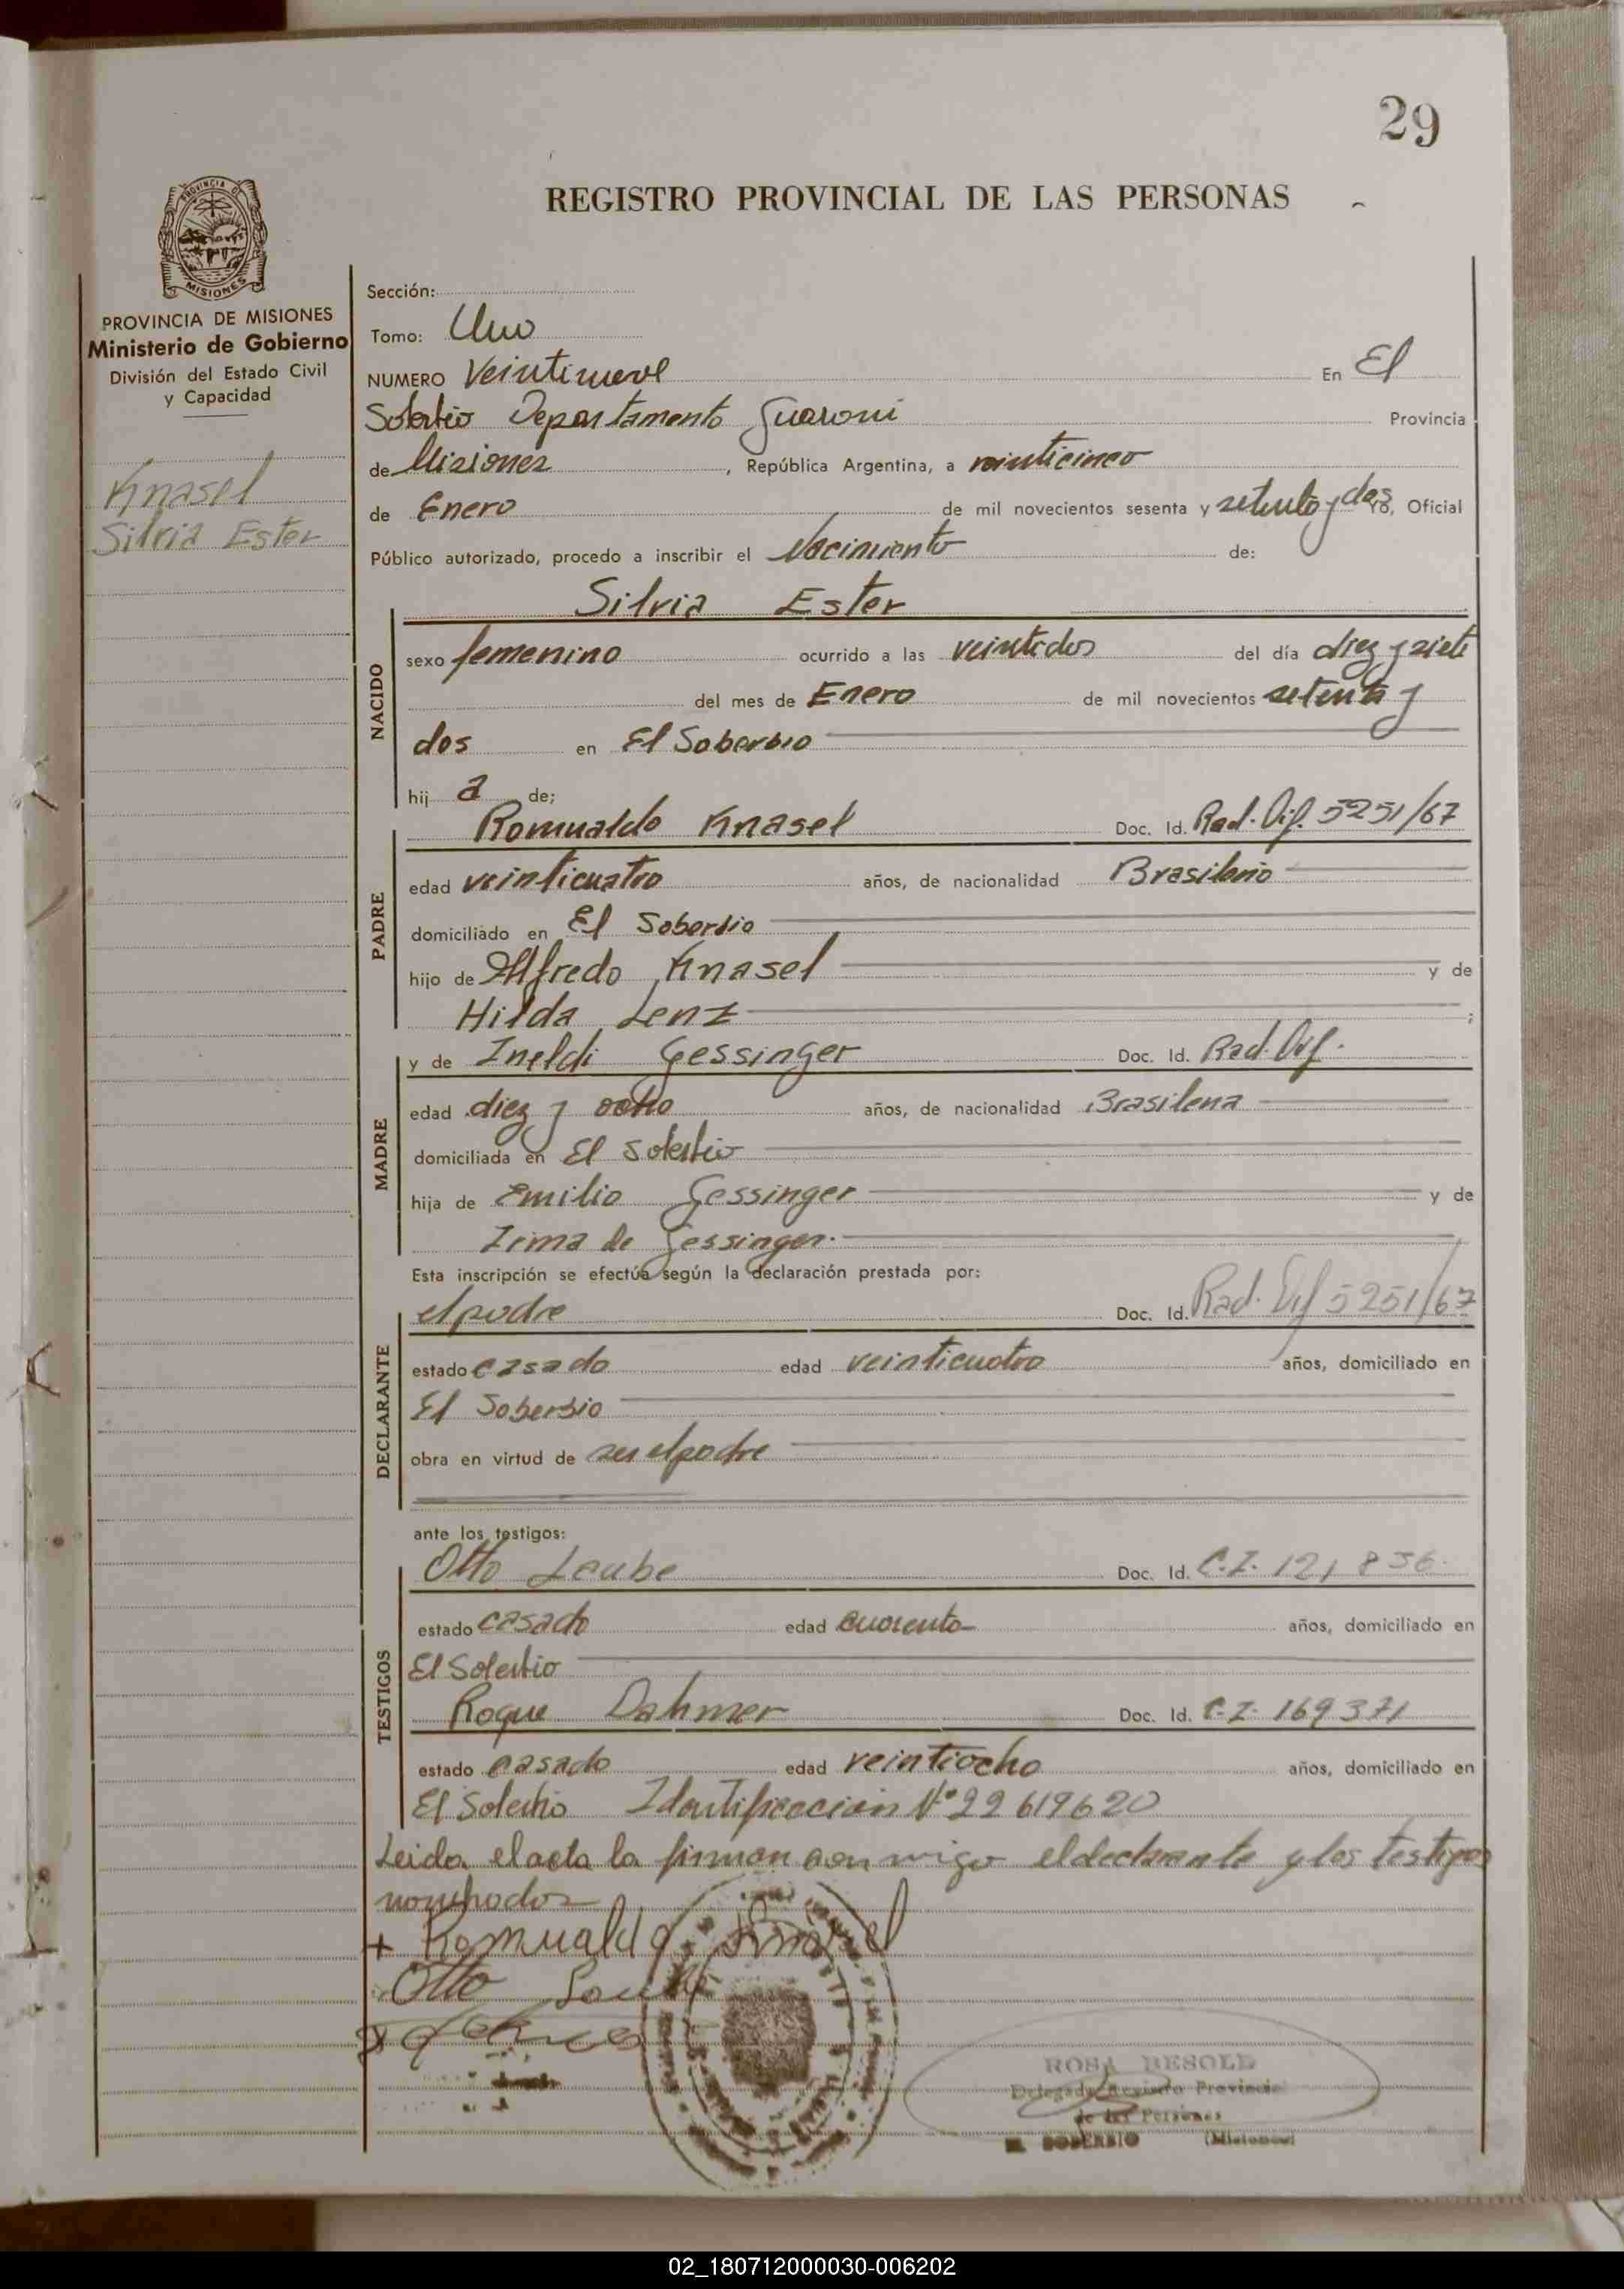 29
REGISTRO PROVINCIAL DE LAS PERSONAS
PROVINCIA DE
MISIONES
PROVINCIA DE MISIONES
Ministerio de Gobierno
División del Estado Civil
y Capacidad
Knasel
Silvia Ester
Sección:
Tomo: Uno
NUMERO Veintinueve En El
Soberbio Departamento Guarani Provincia
de Misiones, República Argentina, a veinticinco
de Enero de mil novecientos sesenta y setenta y dos Yo, Oficial
Público autorizado, procedo a inscribir el Nacimiento de:
Silvia Ester
NACIDO
sexo femenino ocurrido a las veintidos del día diez y siete
del mes de Enero de mil novecientos setenta y
dos en El Soberbio
hij a de;
PADRE
Romualdo Knasel Doc. Id. Rad. Dif. 5251/67
edad veinticuatro años, de nacionalidad Brasileño
domiciliado en El Soberbio
hijo de Alfredo Knasel y de
Hilda Lenz ;
MADRE
y de Ineldi Gessinger Doc. Id. Rad. Dif.
edad diez y ocho años, de nacionalidad Brasilena
domiciliada en El Soberbio
hija de Emilio Gessinger y de
Irma de Gessinger.
Esta inscripción se efectúa según la declaración prestada por:
DECLARANTE
el padre Doc. Id. Rad. Dif 5251/67
estado casado edad veinticuatro años, domiciliado en
El Soberbio
obra en virtud de ser el padre
ante los testigos:
TESTIGOS
Otto Laube Doc. Id. C.I. 121 836
estado casado edad cuarenta años, domiciliado en
El Soberbio
Roque Dahmer Doc. Id. C.I. 169371
estado casado edad veintiocho años, domiciliado en
El Soberbio Identificación Nº 22 619620
Leida el acta la firman con migo el declarante y los testigos
nombrados
+ Romualdo Knasel
Otto Laube
ROSA BESOLD
Delegada Registro Provincial
de las Personas
EL SOBERBIO (Misiones)
02_180712000030-006202